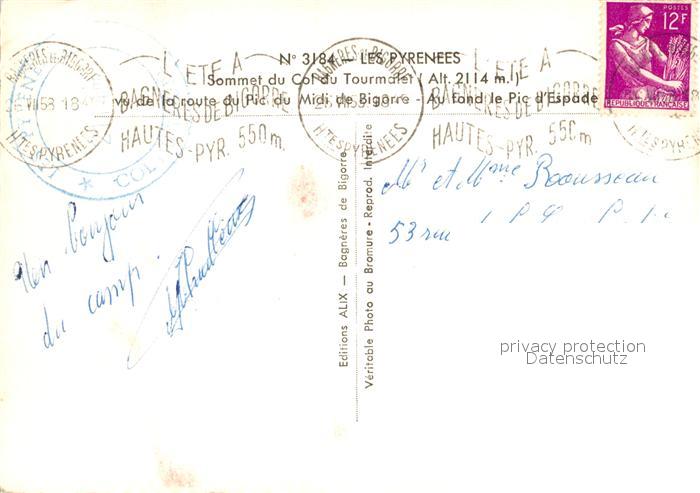 N° 3184 — LES PYRENEES
Sommet du Col du Tourmalet (Alt. 2114 m.)
vu de la route du Pic du Midi de Bigorre - Au fond le Pic d'Espade
L'ETE A
BAGNERES DE BIGORRE
HAUTES-PYR. 550 m.
L'ETE A
BAGNERES DE BIGORRE
HAUTES-PYR. 550 m.
BAGNERES DE BIGORRE
58 18
HTES PYRENEES
BAGNERES DE BIGORRE
HTES PYRENEES
POSTES
12F
REPUBLIQUE FRANÇAISE
Un bonjour
du camp.
Mr et Mme
53 rue
Editions ALIX — Bagnères de Bigorre
Véritable Photo au Bromure - Reprod. Interdite
privacy protection
Datenschutz